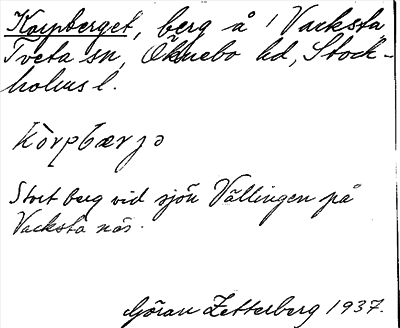 Korpberget, berg å 1 Vacksta,
Tveta sn, Öknebo hd, Stock-
holms l.
kòrpbærjə
Stort berg vid sjön Vällingen på
Vacksta näs.
Göran Zetterberg 1937.